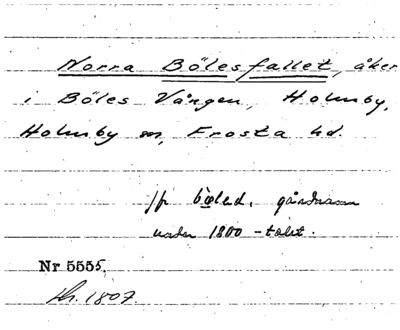 Norra Bölesfallet, åker
i Böles Vången, Holmby,
Holmby sn, Frosta hd.
jfr böled, gårdnamn
under 1800-talet.
Nr 5555.
Kr. 1807.